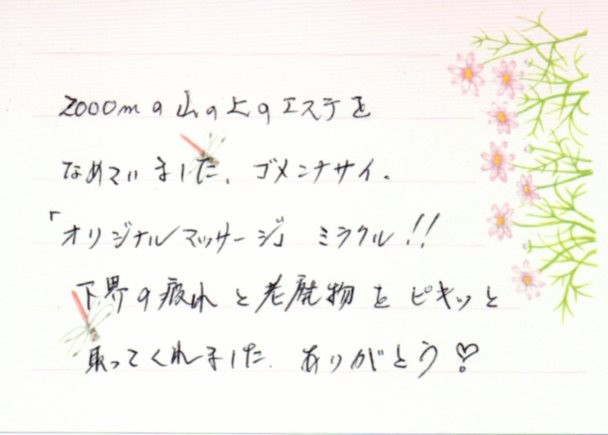 2000mの山の上のエステを
なめていました、ゴメンナサイ.
「オリジナルマッサージ」 ミラクル!!
下界の疲れと老廃物をピキッと
取ってくれました. ありがとう♡